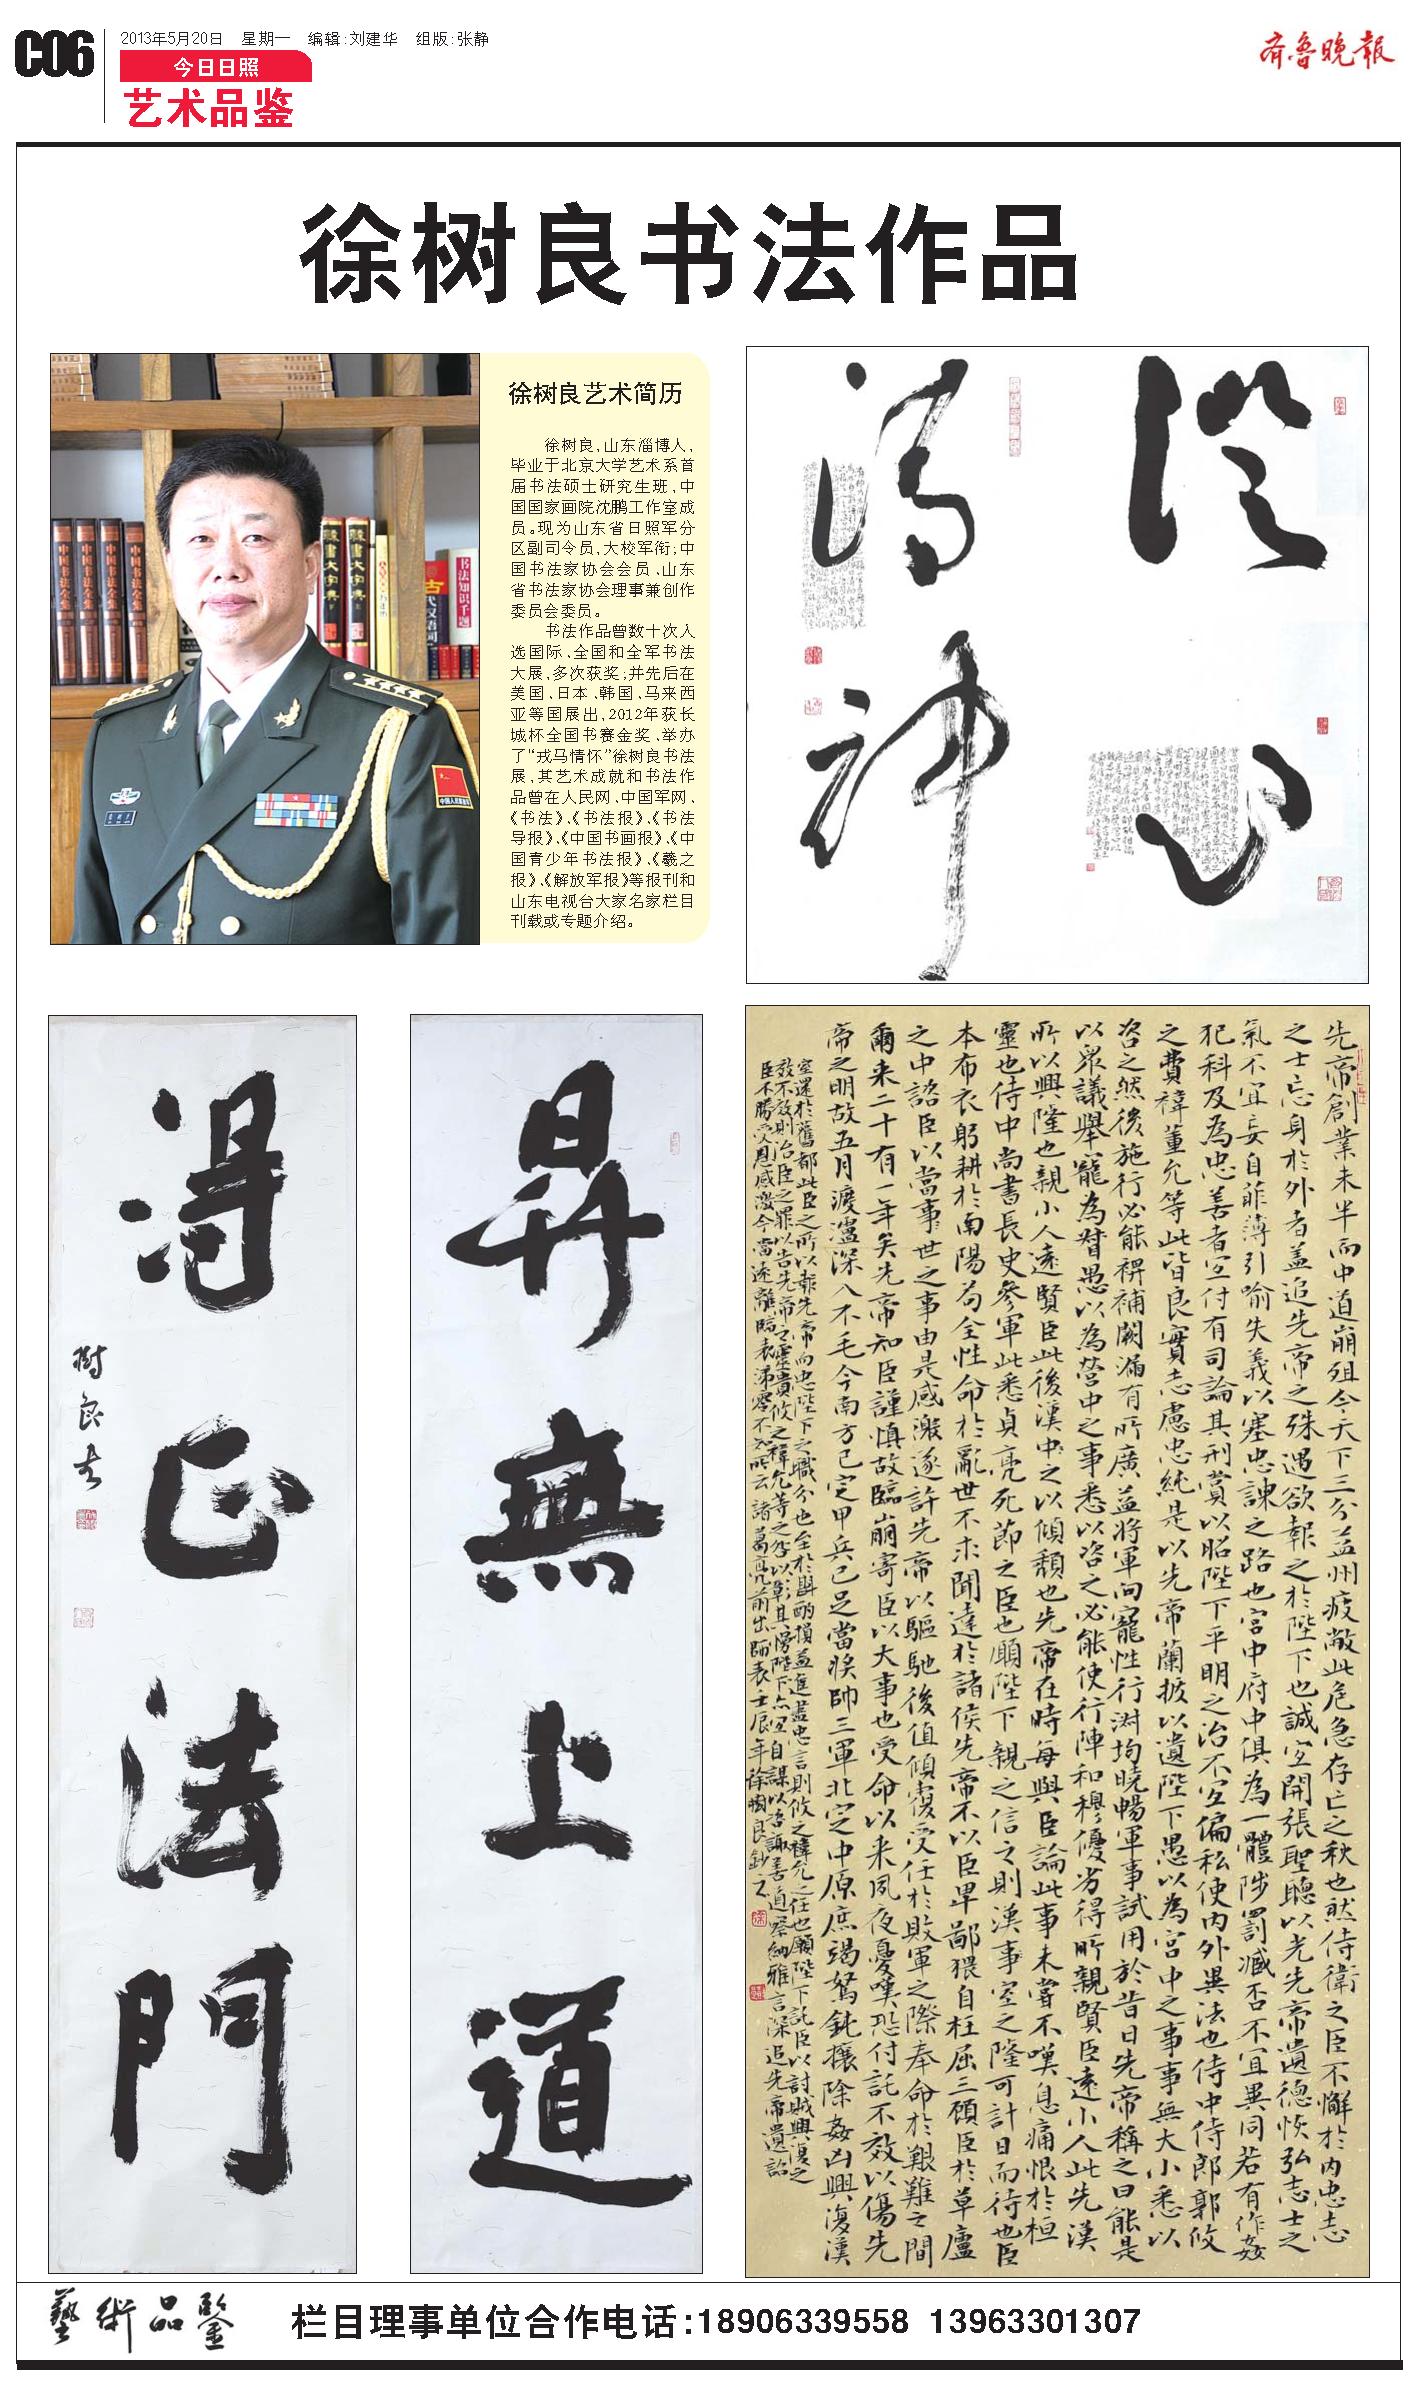 C06
2013年5月20日 星期一 编辑:刘建华 组版:张静
今日日照
艺术品鉴
齐鲁晚报
徐树良书法作品
徐树良艺术简历
徐树良,山东淄博人,
毕业于北京大学艺术系首
届书法硕士研究生班,中
国国家画院沈鹏工作室成
员。现为山东省日照军分
区副司令员,大校军衔;中
国书法家协会会员、山东
省书法家协会理事兼创作
委员会委员。
书法作品曾数十次入
选国际、全国和全军书法
大展,多次获奖;并先后在
美国、日本、韩国、马来西
亚等国展出,2012年获长
城杯全国书赛金奖,举办
了“戎马情怀”徐树良书法
展,其艺术成就和书法作
品曾在人民网、中国军网、
《书法》、《书法报》、《书法
导报》、《中国书画报》、《中
国青少年书法报》、《羲之
报》、《解放军报》等报刊和
山东电视台大家名家栏目
刊载或专题介绍。
澄心
昇無上道
得正法門
樹良书
先帝創業未半而中道崩殂今天下三分益州疲敝此危急存亡之秋也然侍衛之臣不懈於内忠志
之士忘身於外者盖追先帝之殊遇欲報之於陛下也誠宜開張聖聽以光先帝遺德恢弘志士之
氣不宜妄自菲薄引喻失義以塞忠諫之路也宫中府中俱為一體陟罰臧否不宜異同若有作姦
犯科及為忠善者宜付有司論其刑賞以昭陛下平明之治不宜偏私使内外異法也侍中侍郎郭攸
之費禕董允等此皆良實志慮忠純是以先帝蘭拔以遺陛下愚以為宫中之事事無大小悉以
咨之然後施行必能裨補闕漏有所廣益將軍向寵性行淑均曉暢軍事試用於昔日先帝稱之曰能是
以眾議舉寵為督愚以為營中之事悉以咨之必能使行陣和穆優劣得所親賢臣遠小人此先漢
所以興隆也親小人遠賢臣此後漢之以傾頹也先帝在時每與臣論此事未嘗不嘆息痛恨於桓
靈也侍中尚書長史參軍此悉貞亮死節之臣也願陛下親之信之則漢室之隆可計日而待也臣
本布衣躬耕於南陽苟全性命於亂世不求聞達於諸侯先帝不以臣卑鄙猥自枉屈三顧臣於草廬
之中諮臣以當世之事由是感激遂許先帝以驅馳後值傾覆受任於敗軍之際奉命於艱難之間
爾来二十有一年矣先帝知臣謹慎故臨崩寄臣以大事也受命以来夙夜憂嘆恐付託不效以傷先
帝之明故五月渡瀘深入不毛今南方已定甲兵已足當獎帥三軍北定中原庶竭駑鈍攘除姦凶興復漢
室還於舊都此臣之所以報先帝而忠陛下之職分也至於斟酌損益進盡忠言則攸之禕允之任也願陛下託臣以討賊興復之
效不效則治臣之罪以告先帝之靈責攸之禕允等之咎以彰其慢陛下亦宜自謀以咨諏善道察納雅言深追先帝遺詔
臣不勝受恩感激今當遠離臨表涕零不知所云諸葛亮前出師表壬辰年徐樹良鈔之
藝術品鑒
栏目理事单位合作电话:18906339558 13963301307